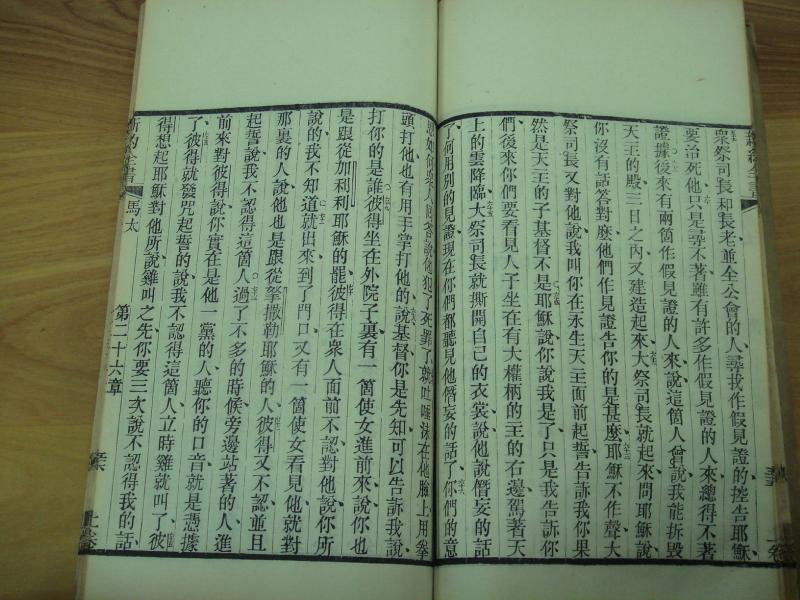 衆祭司長和長老並全公會的人尋我作假見證的控告耶穌
要治死他只是尋不著雖有許多作假見證的人來總得不著
證據後來有兩箇作假見證的人來說這箇人曾說我能拆毀
天主的殿三日之內又建造起來大祭司長就起來問耶穌說
你沒有話答對麽他們作見證告你的是甚麽耶穌不作聲大
祭司長又對他說我叫你在永生天主面前起誓告訴我你果
然是天主的子基督不是耶穌說你說我是了只是我告訴你
們後來你們要看見人子坐在有大權柄的主的右邊駕著天
上的雲降臨大祭司長就撕開自己的衣裳說他說僭妄的話
了何用別的見證現在你們都聽見他僭妄的話了你們的意
思如何衆人回答說他犯了死罪了就吐唾沫在他臉上用拳
頭打他也有用手掌打他的說基督你是先知可以告訴我說
打你的是誰彼得坐在外院子裏有一箇使女進前來說你也
是跟從加利利耶穌的罷彼得在衆人面前不認對他說你所
說的我不知道就出來到了門口又有一箇使女看見他就對
那裏的人說他也是跟從拏撒勒耶穌的人彼得又不認並且
起誓說我不認得這箇人過了不多的時候旁邊站著的人進
前來對彼得說你實在是他一黨的人聽你的口音就是憑據
了彼得就發咒起誓的說我不認得這箇人立時雞就叫了彼
得想起耶穌對他所說雞叫之先你要三次說不認得我的話
新約全書 馬太 第二十六章 上卷